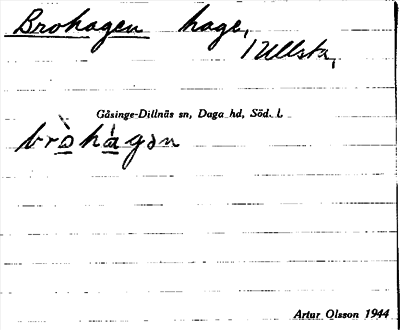 Brohagen hage,
1 Ullsta,
Gåsinge-Dillnäs sn, Daga hd, Söd. l.
bròhàgən
Artur Olsson 1944